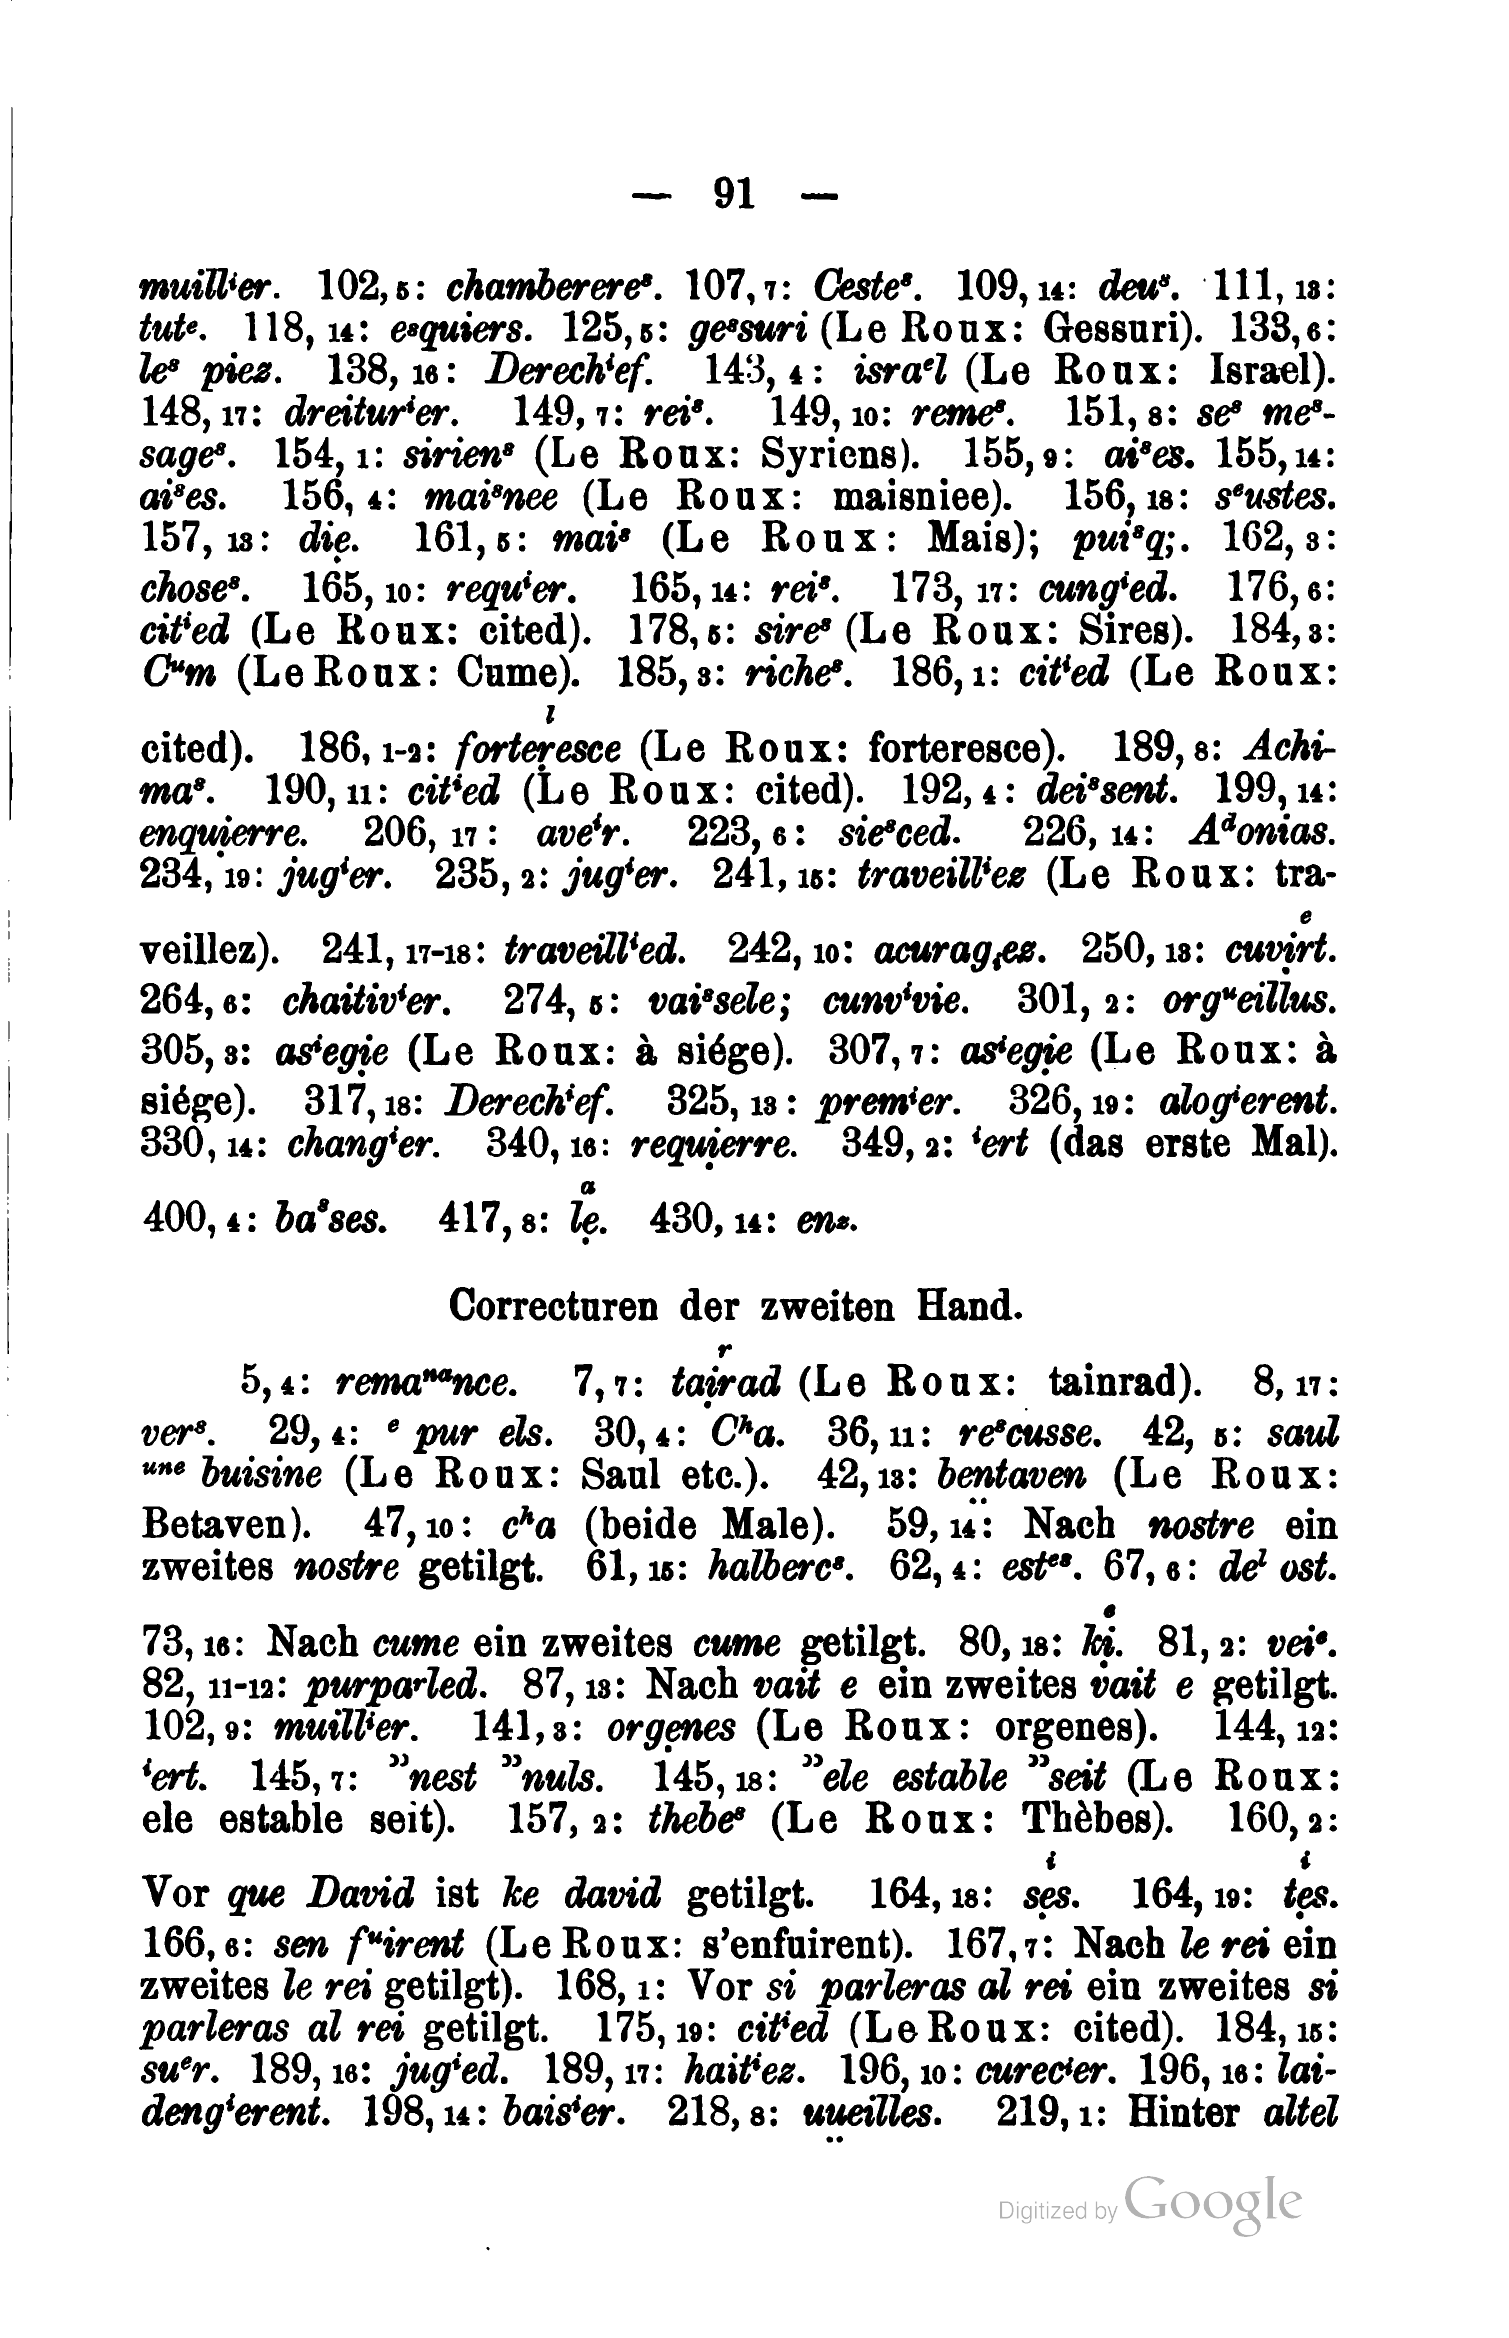 — 91 —
muillⁱer. 102, 5: chamberereˢ. 107, 7: Cesteˢ. 109, 14: deuˢ. 111, 13:
tutᵉ. 118, 14: eˢquiers. 125, 5: geˢsuri (Le Roux: Gessuri). 133, 6:
leˢ piez. 138, 16: Derechⁱef. 143, 4: israᵉl (Le Roux: Israel).
148, 17: dreiturⁱer. 149, 7: reiˢ. 149, 10: remeˢ. 151, 8: seˢ meˢ-
sageˢ. 154, 1: sirienˢ (Le Roux: Syriens). 155, 9: aiˢes. 155, 14:
aiˢes. 156, 4: maiˢnee (Le Roux: maisniee). 156, 18: sᵉustes.
157, 13: dị̣e. 161, 5: maiˢ (Le Roux: Mais); puiˢq;. 162, 3:
choseˢ. 165, 10: requⁱer. 165, 14: reiˢ. 173, 17: cungⁱed. 176, 6:
citⁱed (Le Roux: cited). 178, 5: sireˢ (Le Roux: Sires). 184, 3:
Cᵘm (Le Roux: Cume). 185, 3: richeˢ. 186, 1: citⁱed (Le Roux:
l
cited). 186, 1-2: forteṛesce (Le Roux: forteresce). 189, 8: Achi-
maˢ. 190, 11: citⁱed (Le Roux: cited). 192, 4: deiˢsent. 199, 14:
enquịerre. 206, 17: aveⁱr. 223, 6: sieˢced. 226, 14: Aᵈonias.
234, 19: jugⁱer. 235, 2: jugⁱer. 241, 15: traveillⁱez (Le Roux: tra-
e
veillez). 241, 17-18: traveillⁱed. 242, 10: acuragᵢez. 250, 13: cuvịrt.
264, 6: chaitivⁱer. 274, 5: vaiˢsele; cunvⁱvie. 301, 2: orgᵘeillus.
305, 3: asⁱegịe (Le Roux: à siége). 307, 7: asⁱegịe (Le Roux: à
siége). 317, 18: Derechⁱef. 325, 13: premⁱer. 326, 19: alogⁱerent.
330, 14: changⁱer. 340, 16: requịerre. 349, 2: ⁱert (das erste Mal).
a
400, 4: baˢses. 417, 8: lẹ. 430, 14: enᶻ.
Correcturen der zweiten Hand.
r
5, 4: remaⁿᵃnce. 7, 7: taịrad (Le Roux: tainrad). 8, 17:
verˢ. 29, 4: ᵉ pur els. 30, 4: Cʰa. 36, 11: reˢcusse. 42, 5: saul
ᵘⁿᵉ buisine (Le Roux: Saul etc.). 42, 13: bentaven (Le Roux:
Betaven). 47, 10: cʰa (beide Male). 59, 14: Nach nostre ein
zweites nostre getilgt. 61, 15: halbercˢ. 62, 4: estᵉˢ. 67, 6: deˡ ost.
e
73, 16: Nach cume ein zweites cume getilgt. 80, 18: kị. 81, 2: veiᵉ.
82, 11-12: purpaʳled. 87, 13: Nach vait e ein zweites vait e getilgt.
102, 9: muillⁱer. 141, 3: orgẹnes (Le Roux: orgenes). 144, 12:
ⁱert. 145, 7: ”nest ”nuls. 145, 18: ”ele estable ”seit (Le Roux:
ele estable seit). 157, 2: thebeˢ (Le Roux: Thèbes). 160, 2:
i i
Vor que David ist ke david getilgt. 164, 18: sẹs. 164, 19: tẹs.
166, 6: sen fᵘirent (Le Roux: s’enfuirent). 167, 7: Nach le rei ein
zweites le rei getilgt). 168, 1: Vor si parleras al rei ein zweites si
parleras al rei getilgt. 175, 19: citⁱed (Le Roux: cited). 184, 15:
suᵉr. 189, 16: jugⁱed. 189, 17: haitⁱez. 196, 10: curecⁱer. 196, 16: lai-
dengⁱerent. 198, 14: baisⁱer. 218, 8: uṳeilles. 219, 1: Hinter altel
Digitized by Google